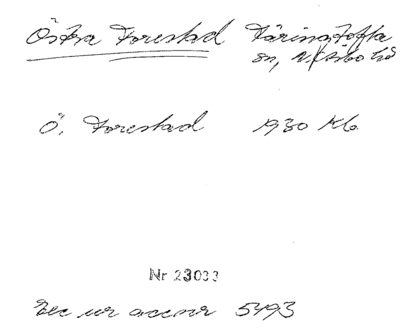 Östra Torestad Täringtofta
sn, V. Göbo hd
Ö. Torestad 1930 Kb.
Nr 23033
Exc ur accnr 5493